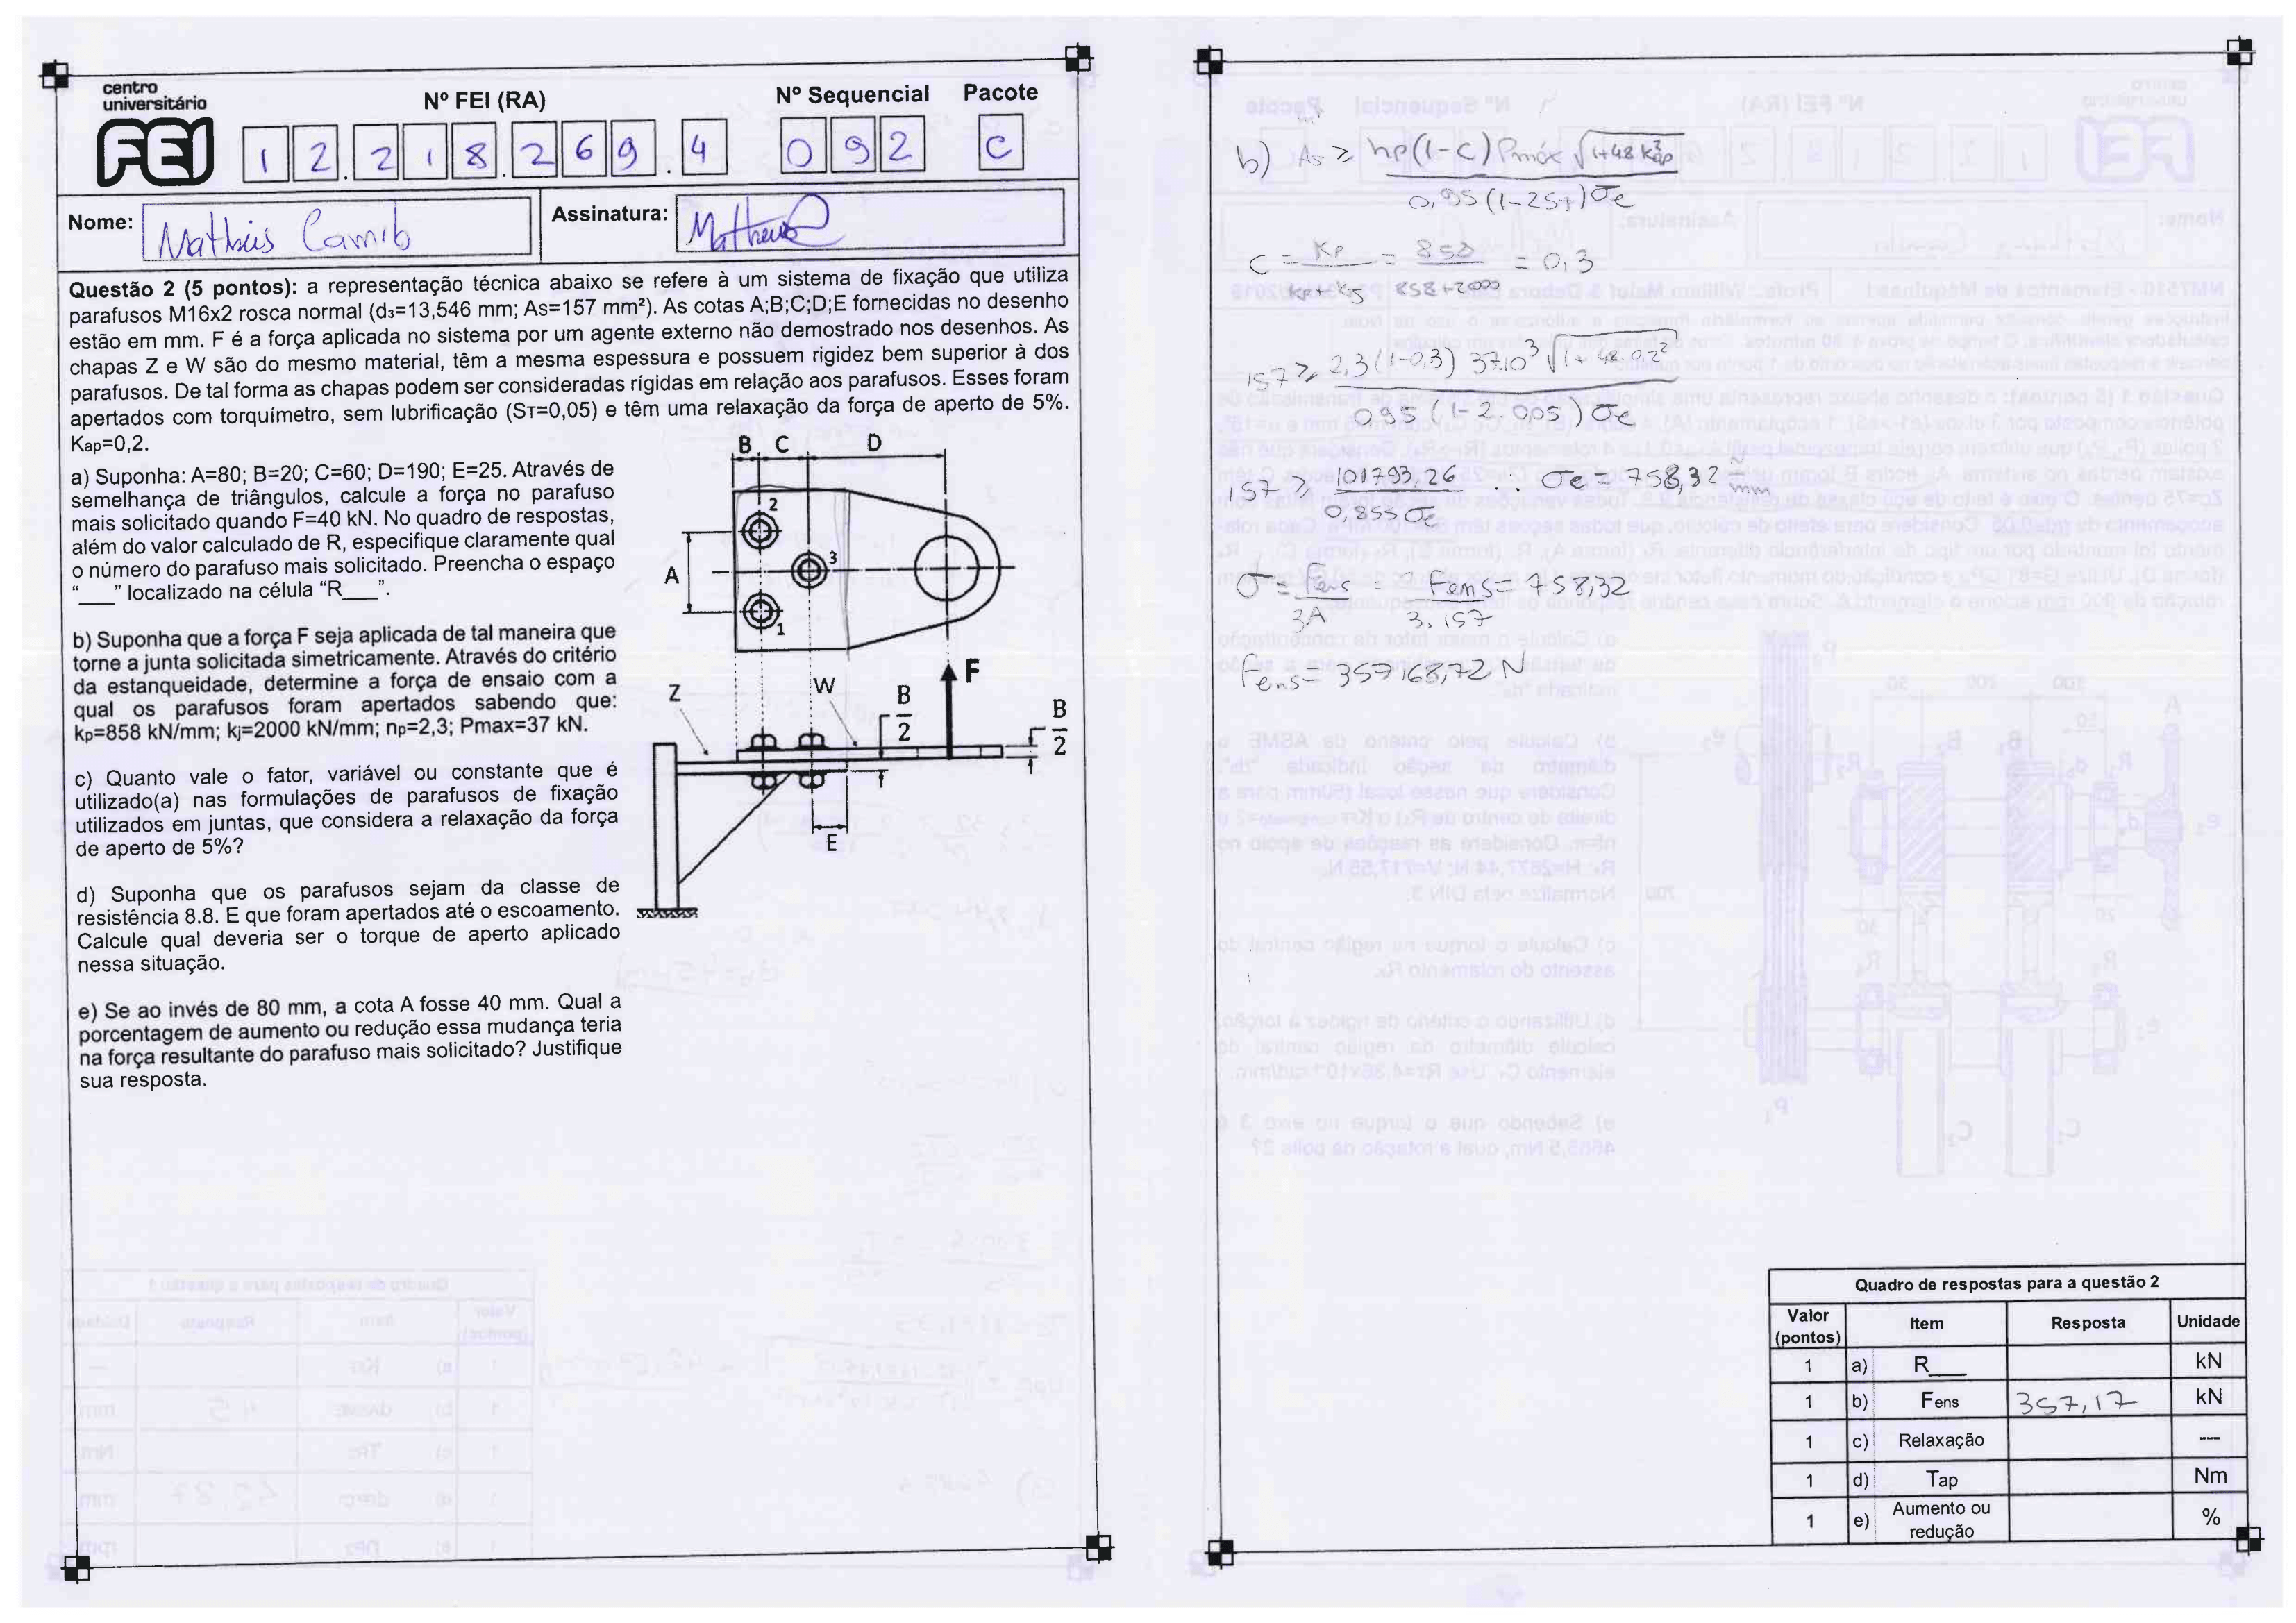 centro
universitário
FEI
Nº FEI (RA)
Nº Sequencial
Pacote
1 2 . 2 1 8 . 2 6 9 . 4
0 9 2
C
Nome:
Assinatura:
Questão 2 (5 pontos): a representação técnica abaixo se refere à um sistema de fixação que utiliza
parafusos M16x2 rosca normal (d₃=13,546 mm; As=157 mm²). As cotas A;B;C;D;E fornecidas no desenho
estão em mm. F é a força aplicada no sistema por um agente externo não demostrado nos desenhos. As
chapas Z e W são do mesmo material, têm a mesma espessura e possuem rigidez bem superior à dos
parafusos. De tal forma as chapas podem ser consideradas rígidas em relação aos parafusos. Esses foram
apertados com torquímetro, sem lubrificação (Sᴛ=0,05) e têm uma relaxação da força de aperto de 5%.
Kap=0,2.
a) Suponha: A=80; B=20; C=60; D=190; E=25. Através de
semelhança de triângulos, calcule a força no parafuso
mais solicitado quando F=40 kN. No quadro de respostas,
além do valor calculado de R, especifique claramente qual
o número do parafuso mais solicitado. Preencha o espaço
“___” localizado na célula “R___”.
b) Suponha que a força F seja aplicada de tal maneira que
torne a junta solicitada simetricamente. Através do critério
da estanqueidade, determine a força de ensaio com a
qual os parafusos foram apertados sabendo que:
kp=858 kN/mm; kj=2000 kN/mm; np=2,3; Pmax=37 kN.
c) Quanto vale o fator, variável ou constante que é
utilizado(a) nas formulações de parafusos de fixação
utilizados em juntas, que considera a relaxação da força
de aperto de 5%?
d) Suponha que os parafusos sejam da classe de
resistência 8.8. E que foram apertados até o escoamento.
Calcule qual deveria ser o torque de aperto aplicado
nessa situação.
e) Se ao invés de 80 mm, a cota A fosse 40 mm. Qual a
porcentagem de aumento ou redução essa mudança teria
na força resultante do parafuso mais solicitado? Justifique
sua resposta.
B C D
2
3
A
1
F
Z
W
B
2
B
2
E
b) As ≥ np(1-c) Pmáx √1+48 K²ap
0,95 (1-2ST) σe
C = Kp = 858 = 0,3
Kp+Kj 858+2000
157 ≥ 2,3 (1-0,3) 37.10³ √1+48.0,2²
0,95 (1-2.0,05) σe
157 ≥ 101793,26 ∴ σe = 758,32 N/mm
0,855 σe
σ = Fens = Fens = 758,32
3A 3.157
Fens = 357168,72 N
Quadro de respostas para a questão 2
Valor (pontos) Item Resposta Unidade
1 a) R___ kN
1 b) Fens 357,17 kN
1 c) Relaxação ---
1 d) Tap Nm
1 e) Aumento ou redução %